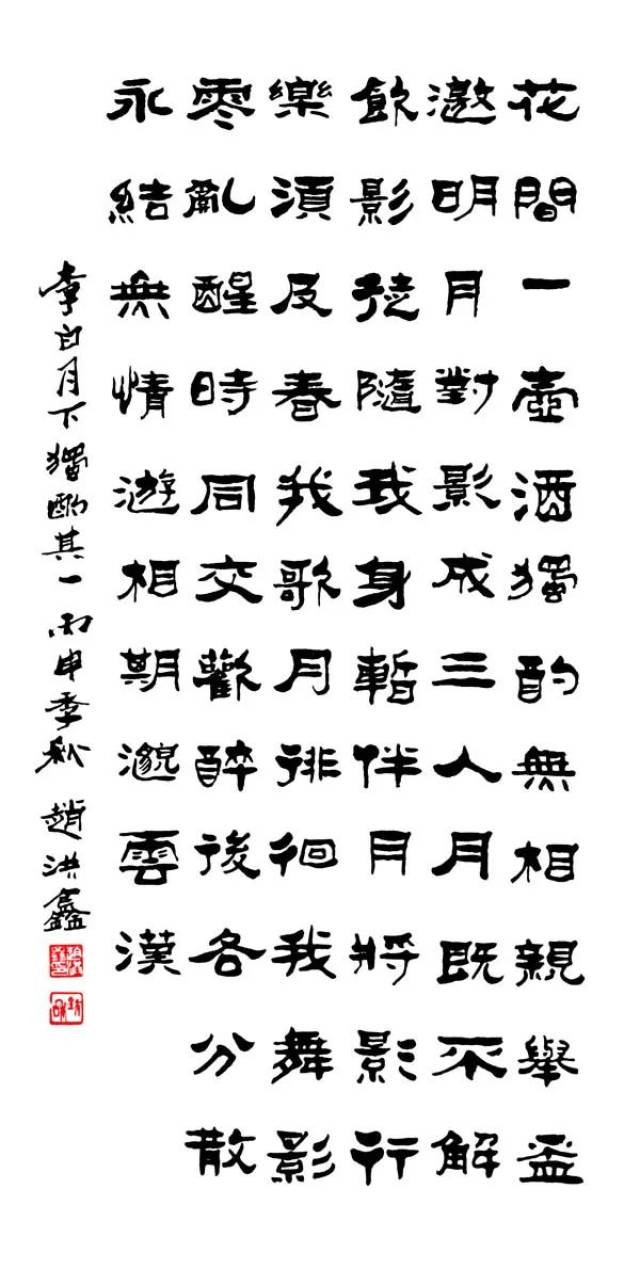 花間一壺酒獨酌無相親舉盃
邀明月對影成三人月既不解
飲影徒隨我身暫伴月將影行
樂須及春我歌月徘徊我舞影
零亂醒時同交歡醉後各分散
永結無情遊相期邈雲漢
李白月下獨酌其一 丙申季秋 趙洪鑫